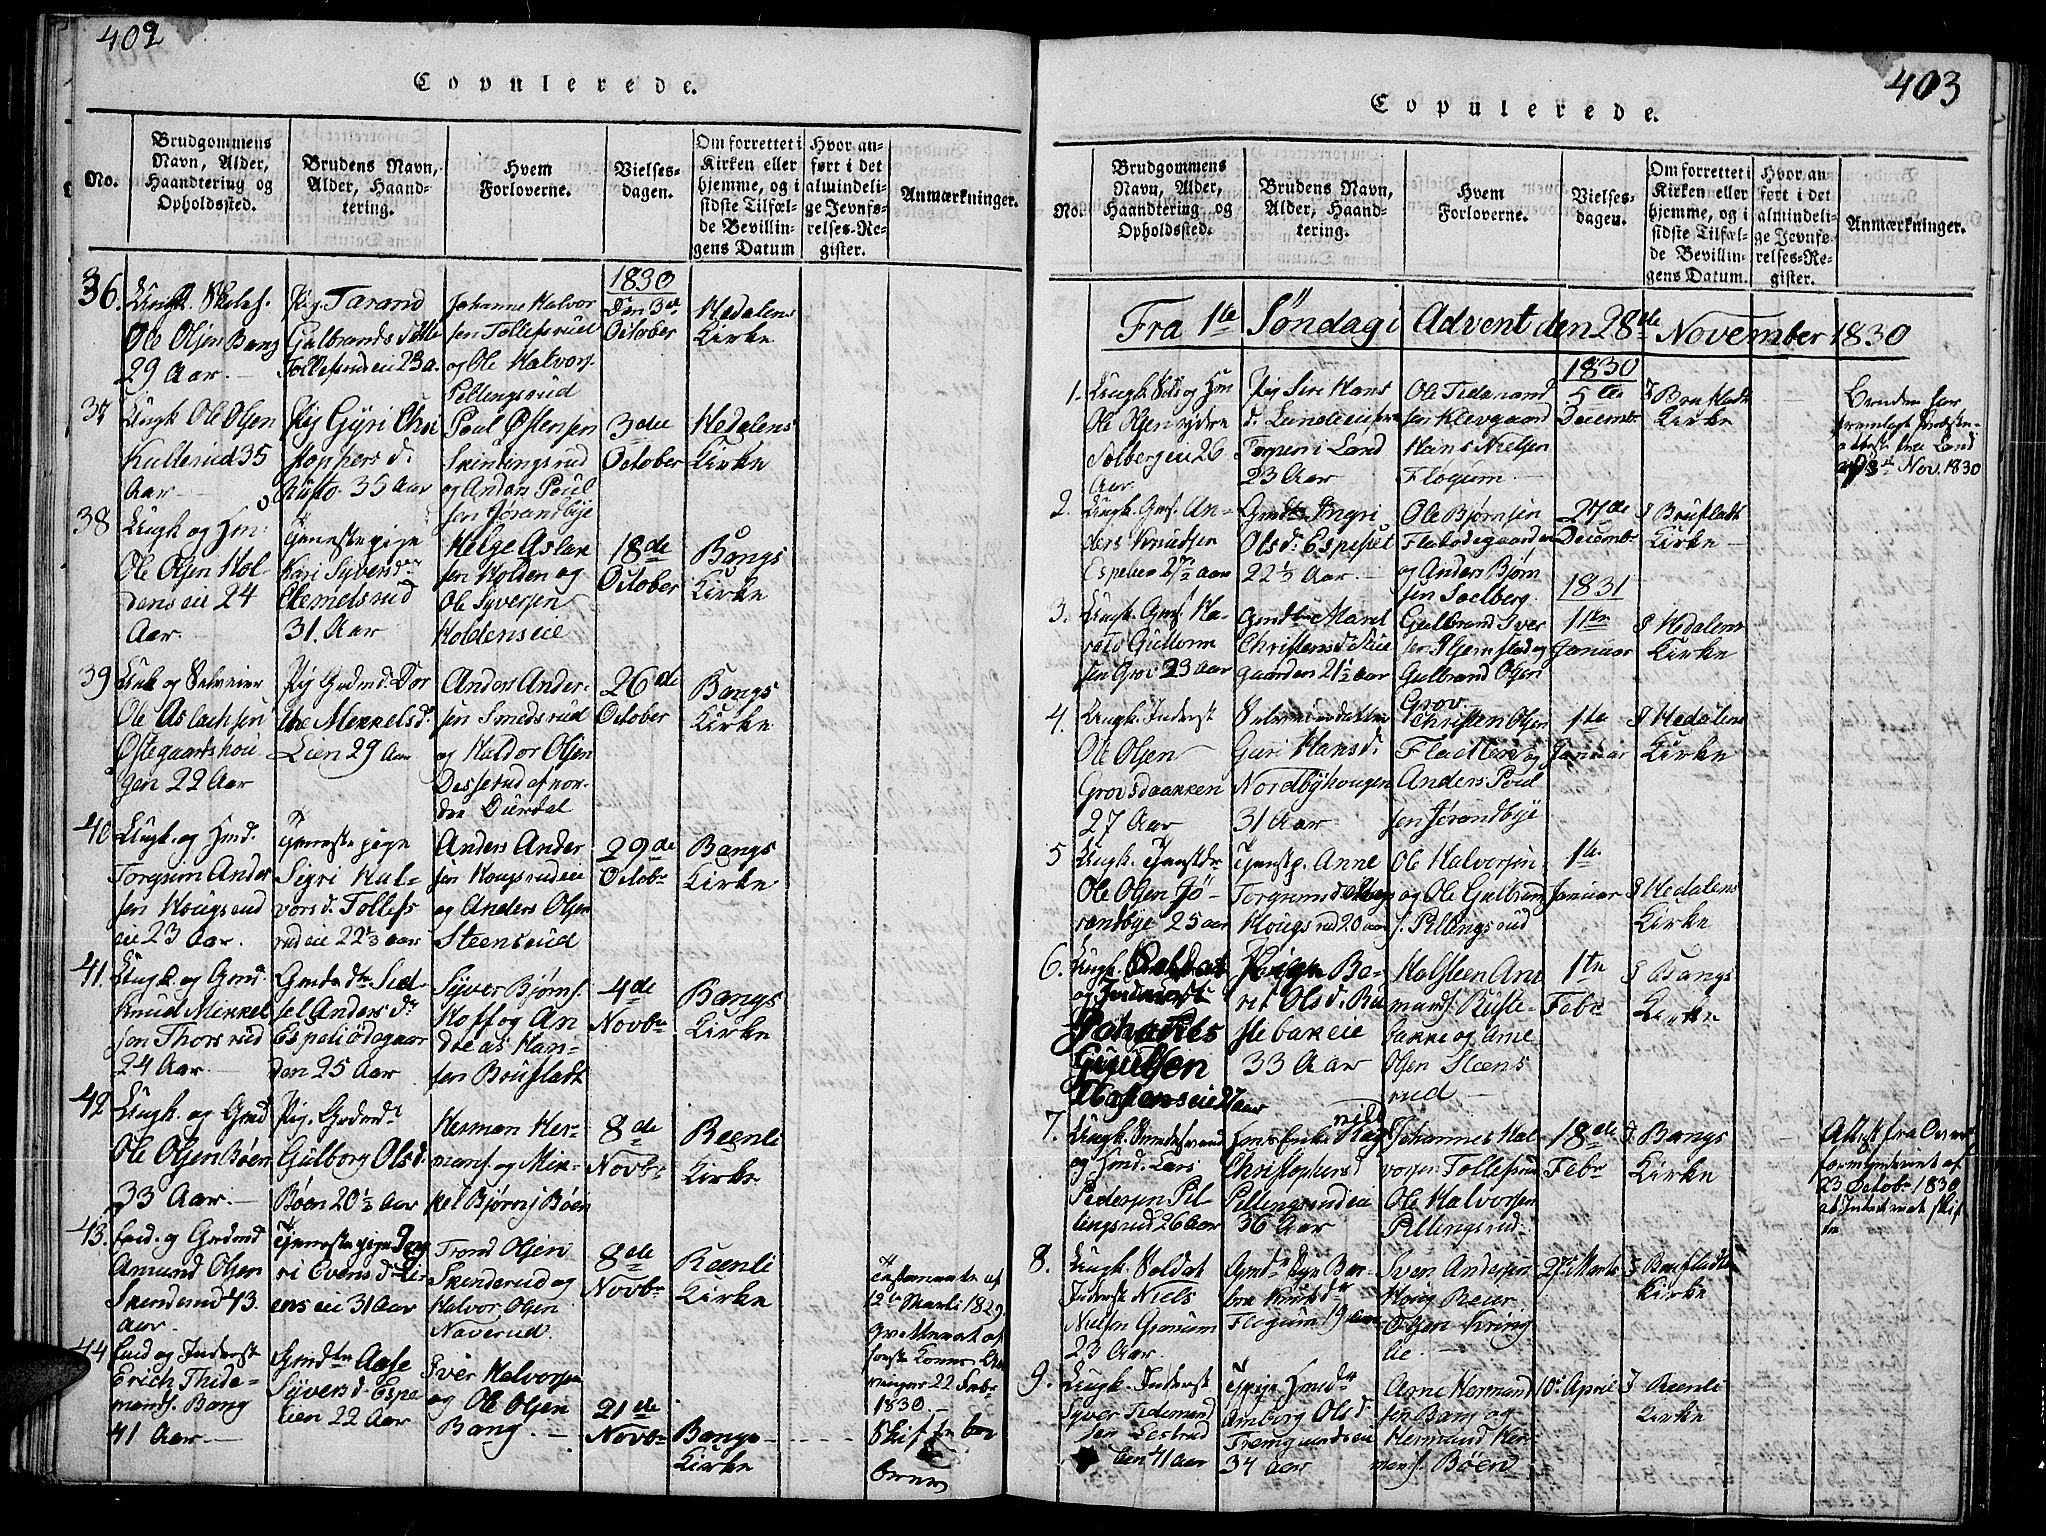 402
Copulerede.
No.
Brudgommens Navn, Alder, Haandtering og Opholdssted.
Brudens Navn, Alder, Haandtering.
Hvem Forloverne.
Vielsesdagen.
Om forrettet i Kirken eller hjemme, og i sidste Tilfælde Bevillingens Datum
Hvor anført i det almindelige Jevnførelses-Register.
Anmærkninger.
36.
Ole Olsen Bang
29 Aar.
Pig. Tarand
Gulbrandsdatter
Tollefsrudeie 23 a.
Johanne Halvor
sen Tollefsrud
og Ole Halvors.
Pellingsrud
1830
Den 3de
October
Hedalens
Kirke
37
Ungk. Ole Olsen
35
Aar
Pig Gyri Chri
stophersd.
35 Aar
Poul Østensen
og Anders Poul
sen Jørandbye
3die
October
Hedalens
Kirke
38
Ungk. og
Ole Olsen Hol
denseie 24
Aar.
Tjenestepige
Kari Syversdr
Klemetsrud
31. Aar
Helge Aslak
sen Holden og
Ole Syversen
Holdenseie
18de
October
Bangs
Kirke
39
Ole Aslachsen
Østegaardshou
gen 22 Aar
Pig Grdmd. Dor
the Mekkelsd.
Lien 29 Aar
Anders Ander
sen Smedsrud
og Haldor Olsen
Dasserud af nor
dre Øurdal
26de
October
Bangs
Kirke
40
Ungk. og Hmd.
Torgrim Anders
sen Hougsrud
eie 23 Aar.
Tjeneste pige
Sigri Hal-
vorsd. Tollefs
rudeie 22½ aar
Anders Ander
sen Hougsrudeie
og Anders Olsen
Steensrud
29de
Octobr
Bangs
Kirke
41.
Ungk. og Gmd.
Knud Mikkel
sen Thorsrud
24 Aar.
Sid
sel Andersdr
Espeliødegaar
den 25 Aar
Syver Bjørns.
Hoff og An
dreas Han-
sen Brufladt
4de
Novbr
Bangs
Kirke
42
Ungk. og Gmd
Ole Olsen Bøen
33 Aar.
Pig.
Gulborg Olsd.
Bøen 20½ Aar
Herman Her-
mans. og Mik-
kel Bjørns. Bøen
8de
Novbr
Reenli
Kirke
43.
Enk. og Grdmd
Amund Olsen
Skinderud 43.
aar.
Tjeneste pige
ri Evensd.
enseie 31 Aar
Trond Olsen
Skinderud og
Halvor Olsen
Naverud.
8de
Novbr
Reenli
Kirke
Testamente af
12te Marti 1829
22 Febr
1830.
44
Enk. og Inderst
Erich Thide-
mands. Bang
41 Aar.
Gmdtr Aase
Syversd. Espe
lien 22 Aar
Iver Halvorsen
og Ole Olsen
Bang.
21de
Novbr
Bangs
Kirke
403
Copulerede.
No.
Brudgommens Navn, Alder, Haandtering og Opholdssted.
Brudens Navn, Alder, Haandtering.
Hvem Forloverne.
Vielsesdagen.
Om forrettet i Kirken eller hjemme, og i sidste Tilfælde Bevillingens Datum.
Hvor anført i det almindelige Jevnførelses-Register.
Anmærkninger.
Fra 1te Søndag i Advent den 28de November 1830
1.
Ole Olsen
Solbergen 26
Aar
Pig Siri Hans
i Land
23 Aar
Ole Tidemand
sen Klevgaard
Hans Nielsen
Flogum
1830
5te
Decembr
I Brufladt
Kirke
Nov. 1830
2.
Ungk. Gms. An-
ders Knudsen
Espelien 27½ aar
Ingri
Olsd. Espeset
22½ Aar.
Ole Bjørnsen
Fladødegaarden
og Anders Bjørn
sen Soelberg.
27de
Decembr
I Bruflads
Kirke
3.
Ungk. Gms. Ha-
rald Guttorm
sen Grøv 23 aar
Marit
Christensdr
gaarden 21½ aar
Gulbrand Iver
sen og
Gulbrand Olsen
Grøv
1831
1te
Januar
I Hedalens
Kirke
4.
Ungk. Inderst
Ole Olsen
Grovsdaakken
27 Aar
Guri Hansd.
Nordbyhougen
31 Aar
Christen Olsen
Fladten og
Anders Poul
sen Jørandbye
1te
Januar
I Hedalens
Kirke
5
Ungk. Tjenestdr
Ole Olsen Jø-
randbye 25 aar
Tjenstp. Anne
Torgrimsd
Hougsrud 20 aar
Ole Halvorsen
og Ole Gulbrand
s. Pellingsrud
1te
Januar
I Hedalens
Kirke
6.
Ungk. Soldat
og Inderst
Johannes
27 aar
Pige Be-
rit Olsd. Ru
stebakeie
33 Aar
Halsteen Am
mands. Ruste-
bakke og Arne
Olsen Steens
rud
1te
Febr
I Bangs
Kirke
7.
og Hmd. Lars
Pedersen Pel-
lingsrud 26 Aar
Enke
Christophersd
Pellingsrudeie
36 Aar
Johannes Hal
vorsen Tollefsrud
Ole Halvorsen
Pellingsrud.
18de
Febr
I Bangs
Kirke
Attest fra Over
formynderiet af
23 Octobr 1830
at Intet var at skif
te
8.
Ungk. Soldat
Inderst Niels
Nielsen Granum
23 Aar.
Bar-
bra Knudsdr
Flogum 19 aar
Sven Andersen
Houg Reier
Olsen Kring
lie.
27de Marts
I Bruflads
Kirke
9.
Ungk. Inderst
Syver Tidemand
sen
lien 41 aar
Tjpige Hmdr
Amborg Olsd
Fremgaardseie
34 aar
Arne Hermand
sen Bang og
Hermand Her-
mans. Bøen
10de April
I Reenli
Kirke